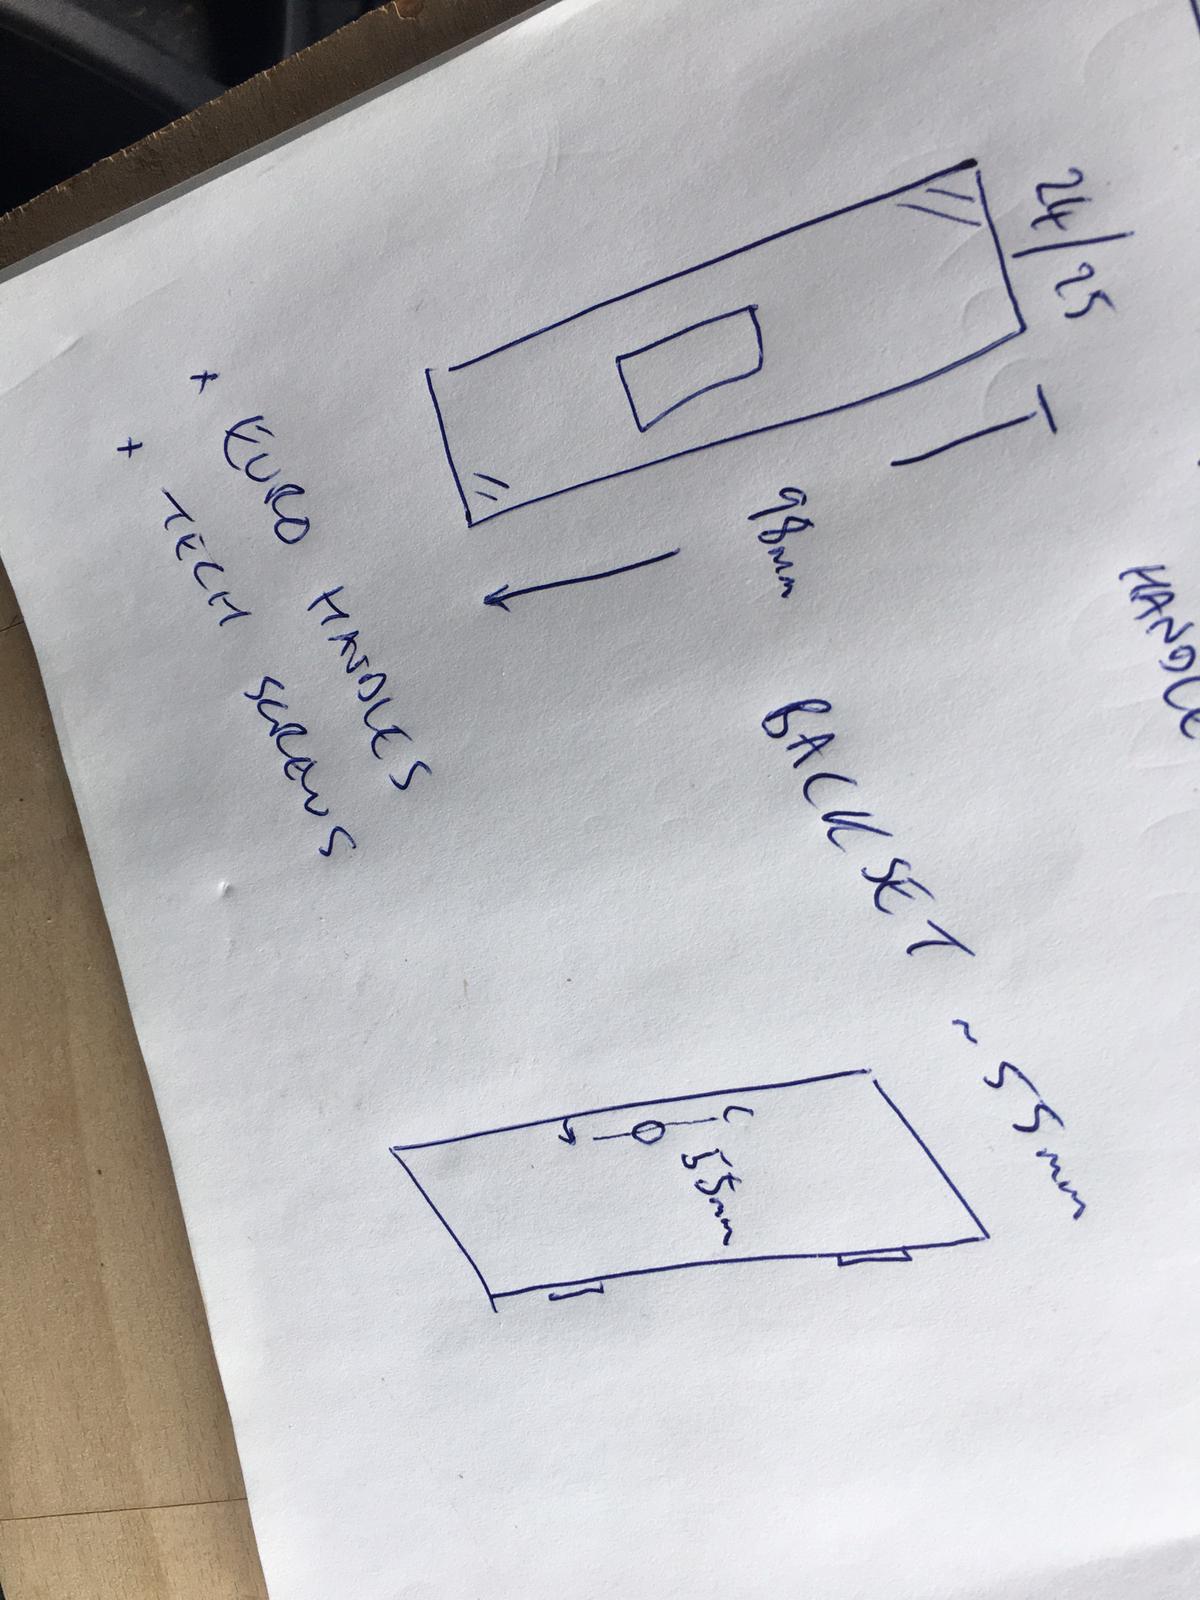 HANDLE
24/25
98mm
BACKSET ~ 55mm
55mm
+ EURO HANDLES
+ TECH SCREWS